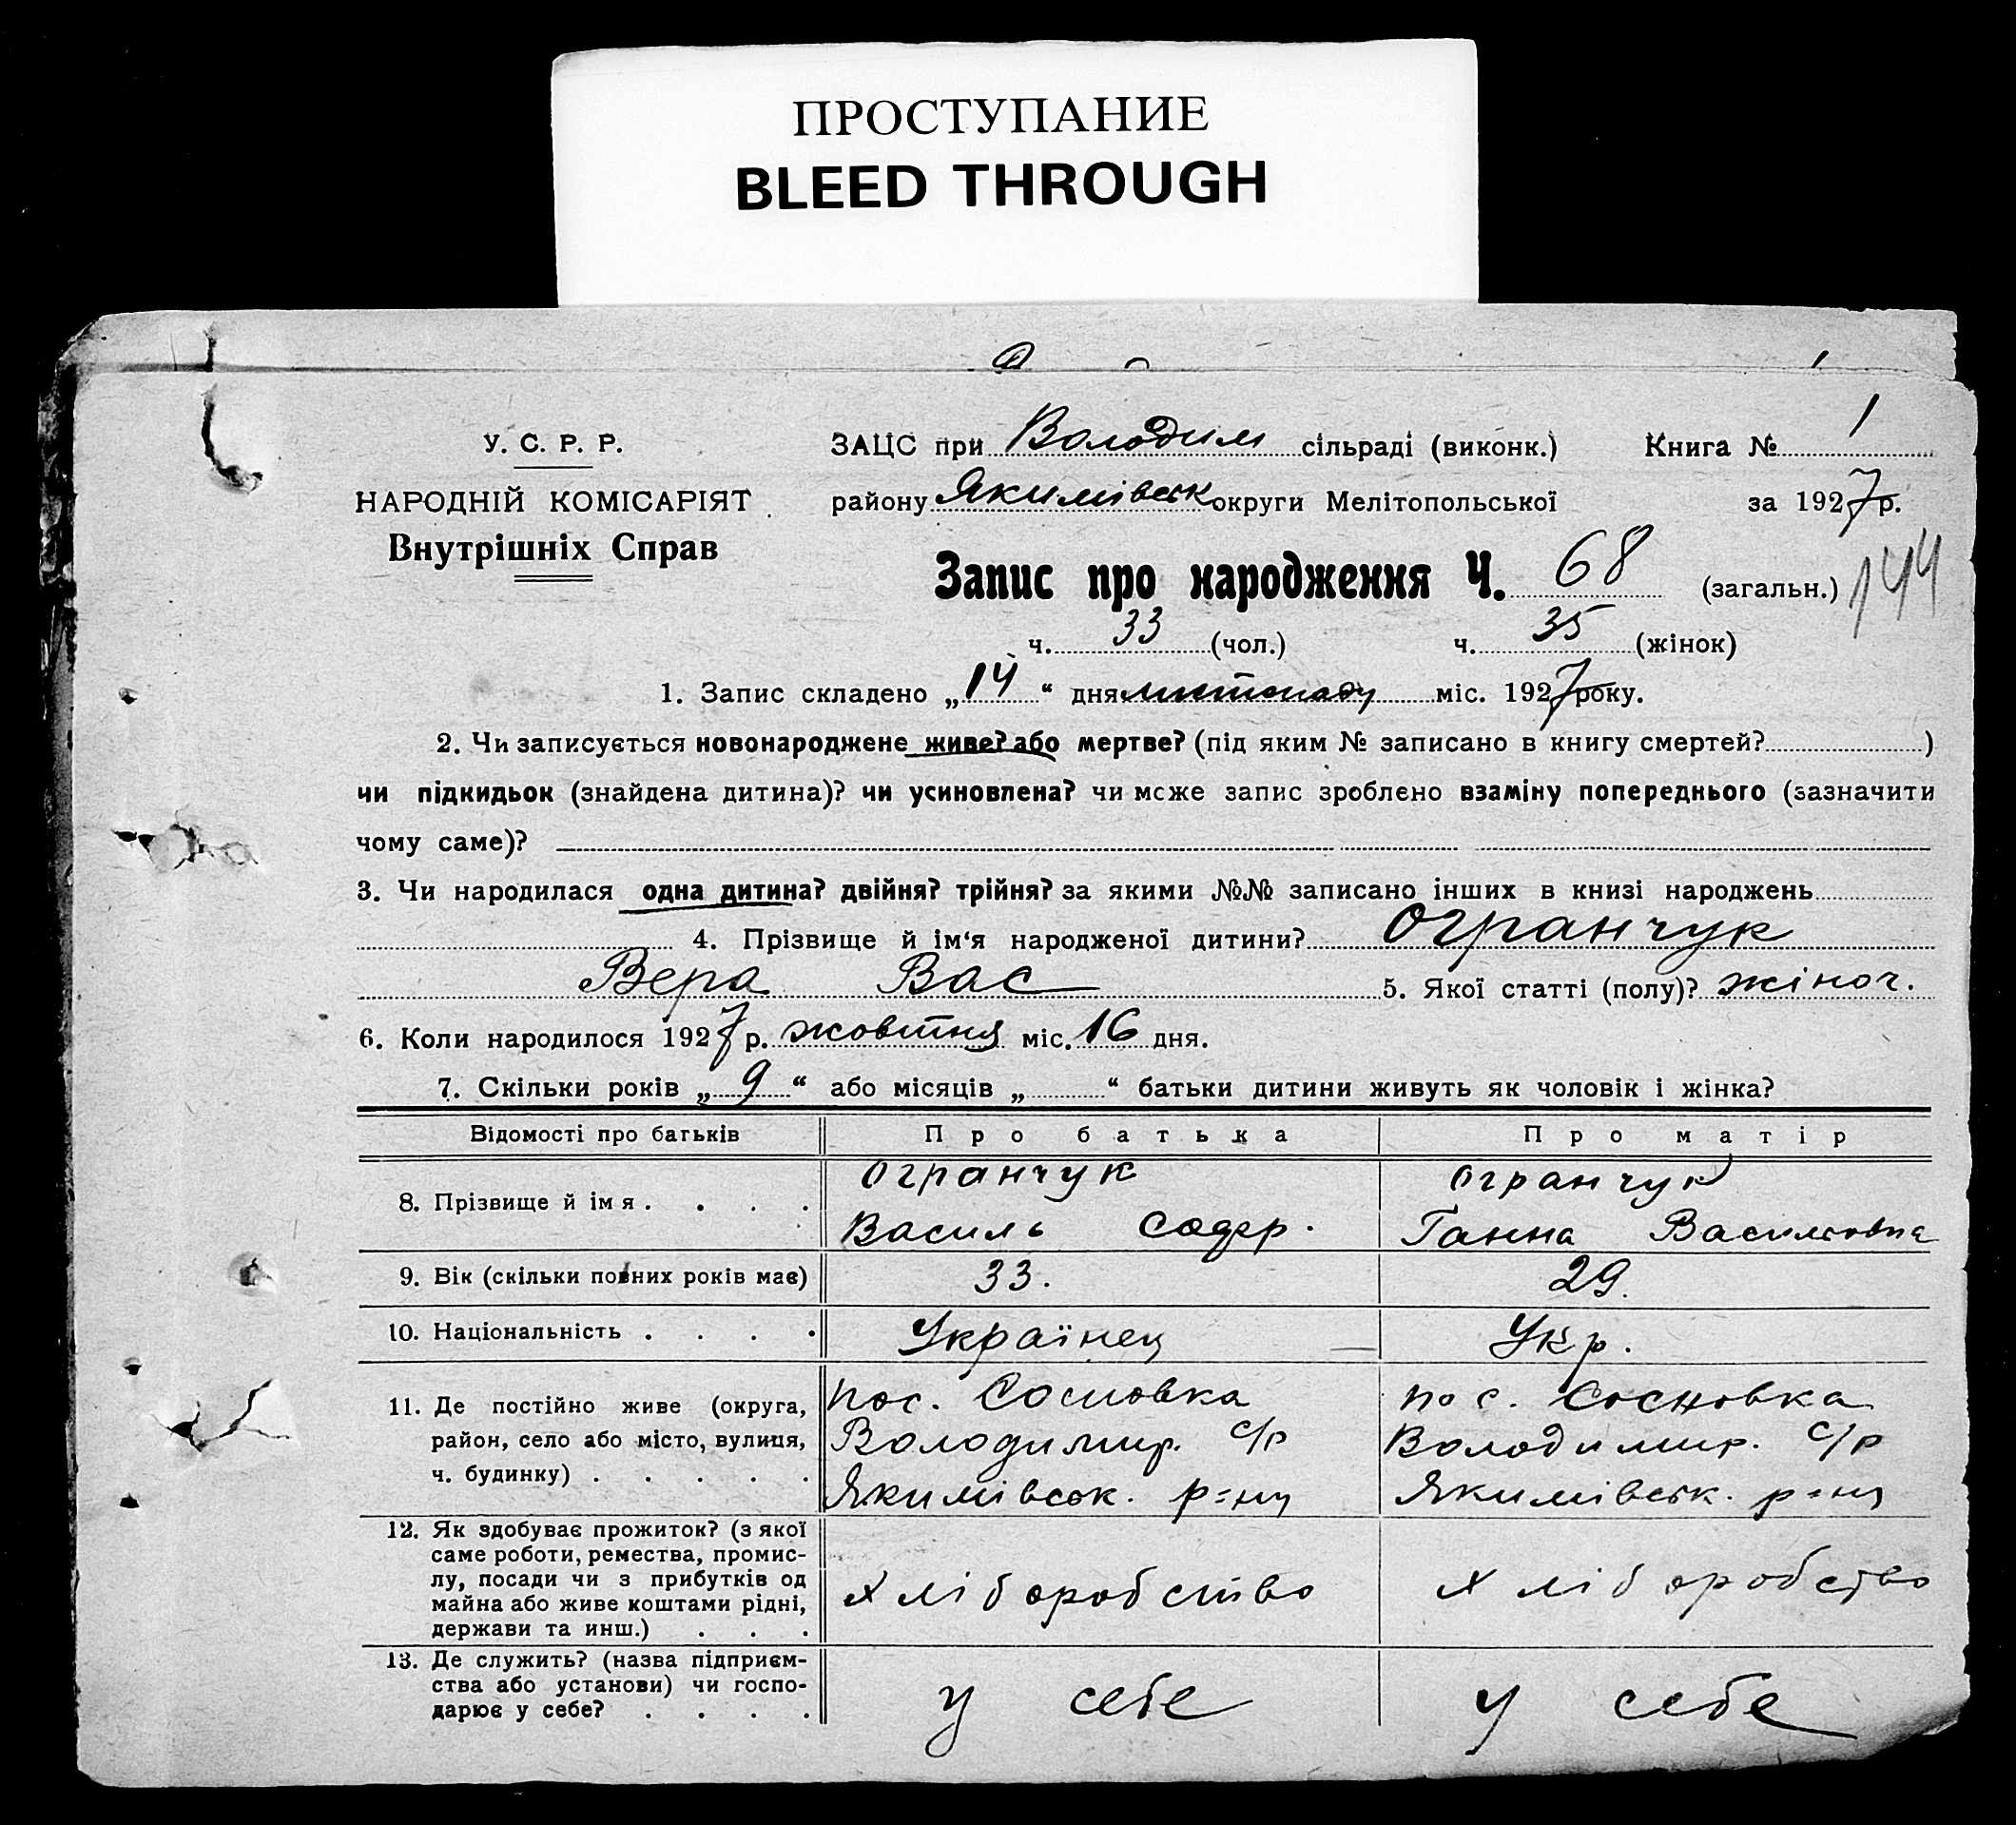 ПРОСТУПАНИЕ
BLEED THROUGH
У. С. Р. Р.
НАРОДНІЙ КОМІСАРІЯТ
Внутрішніх Справ
ЗАЦС при Володим сільраді (виконк.) Книга № 1
району Якимівськ округи Мелітопольської за 1927 р.
Запис про народження Ч. 68 (загальн.) 144
ч. 33 (чол.) ч. 35 (жінок)
1. Запис складено „14“ дня листопаду міс. 1927 року.
2. Чи записується новонароджене живе? або мертве? (під яким № записано в книгу смертей? )
чи підкидьок (знайдена дитина)? чи усиновлена? чи може запис зроблено взаміну попереднього (зазначити
чому саме)?
3. Чи народилася одна дитина? двійня? трійня? за якими №№ записано інших в книзі народжень
4. Прізвище й ім‘я народженої дитини? Огранчук
Вера Вас 5. Якої статті (полу)? жіноч.
6. Коли народилося 1927 р. жовтня міс. 16 дня.
7. Скільки років „9“ або місяців „ “ батьки дитини живуть як чоловік і жінка?
Відомості про батьків Про батька Про матір
8. Прізвище й імя . . . . Огранчук Василь Огранчук Ганна Василювна
9. Вік (скільки повних років має) 33. 29.
10. Національність . . . . Українец Укр.
11. Де постійно живе (округа, район, село або місто, вулиця, ч. будинку) . . . . . пос. Сосновка Володимир. с/р Якимівськ. р=ну пос. Сосновка Володимир. с/р Якимівськ. р=ну
12. Як здобуває прожиток? (з якої саме роботи, ремества, промислу, посади чи з прибутків од майна або живе коштами рідні, держави та инш.) . . . хліборобство хліборобство
13. Де служить? (назва підприємства або установи) чи господарює у себе? . . . . у себе у себе